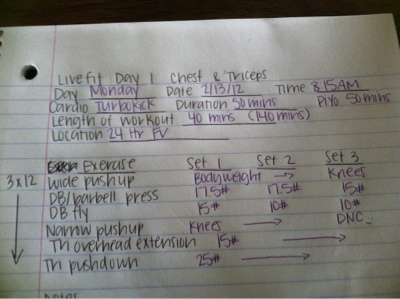 Livefit Day 1 Chest & Triceps
Day Monday Date 2/13/12 Time 8:15AM
Cardio Turbokick Duration 50 mins PiYo 50 mins
Length of workout 40 mins (140 mins)
Location 24 Hr FV
Exercise Set 1 Set 2 Set 3
3x12 Wide pushup Bodyweight → Knees
DB/barbell press 17.5# 17.5# 15#
DB fly 15# 10# 10#
Narrow pushup Knees → DNC
Tri overhead extension 15# →
Tri pushdown 25# →
Notes